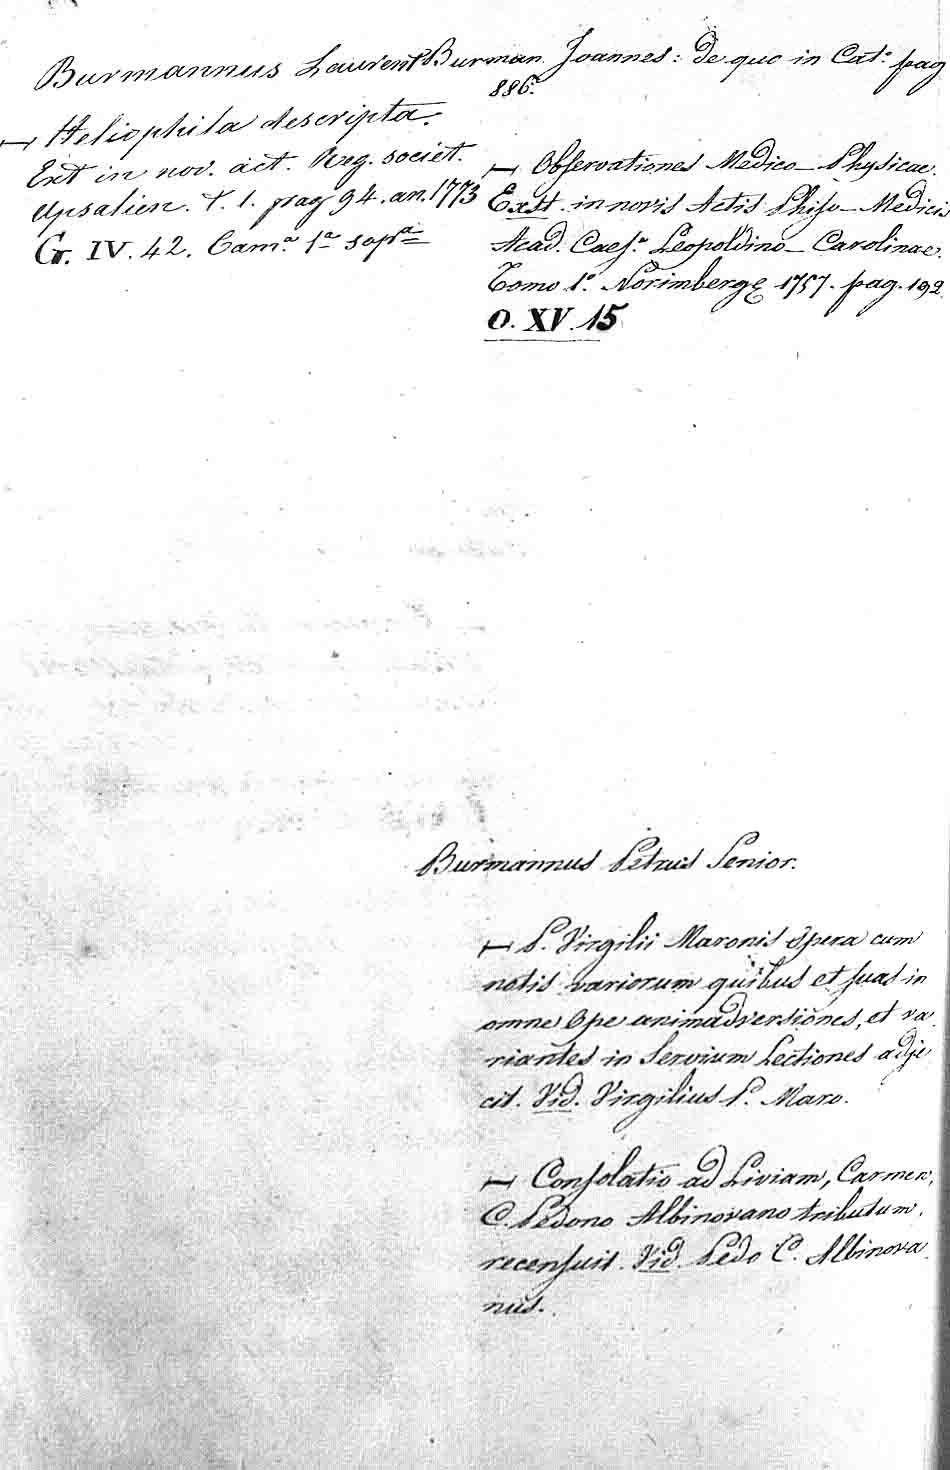 Burmannus Laurent.s
— Heliophila descripta.
Ext in nov. act. Reg. societ.
Upsalien. T. 1. pag 94. an. 1773
G. IV. 42. Cam.a 1.a sop.a
Burman. Joannes: De quo in Cat.o pag
886.
— Observationes Medico-Physicae.
Exst. in novis Actis Phiso-Medicis
Acad. Caes.a Leopoldino-Carolinae.
Tomo 1.o Norimbergę 1757. pag. 192.
O. XV. 15
Burmannus Petrus Senior.
— P. Virgilii Maronis Opera cum
notis variorum quibus et suas in
omne Ope animadversiones, et va
riantes in Servium Lectiones adje
cit. Vid. Virgilius P. Maro.
— Consolatio ad Liviam, Carmen,
C. Pedono Albinovano tributum,
recensuit. Vid. Pedo C. Albinova
nus.